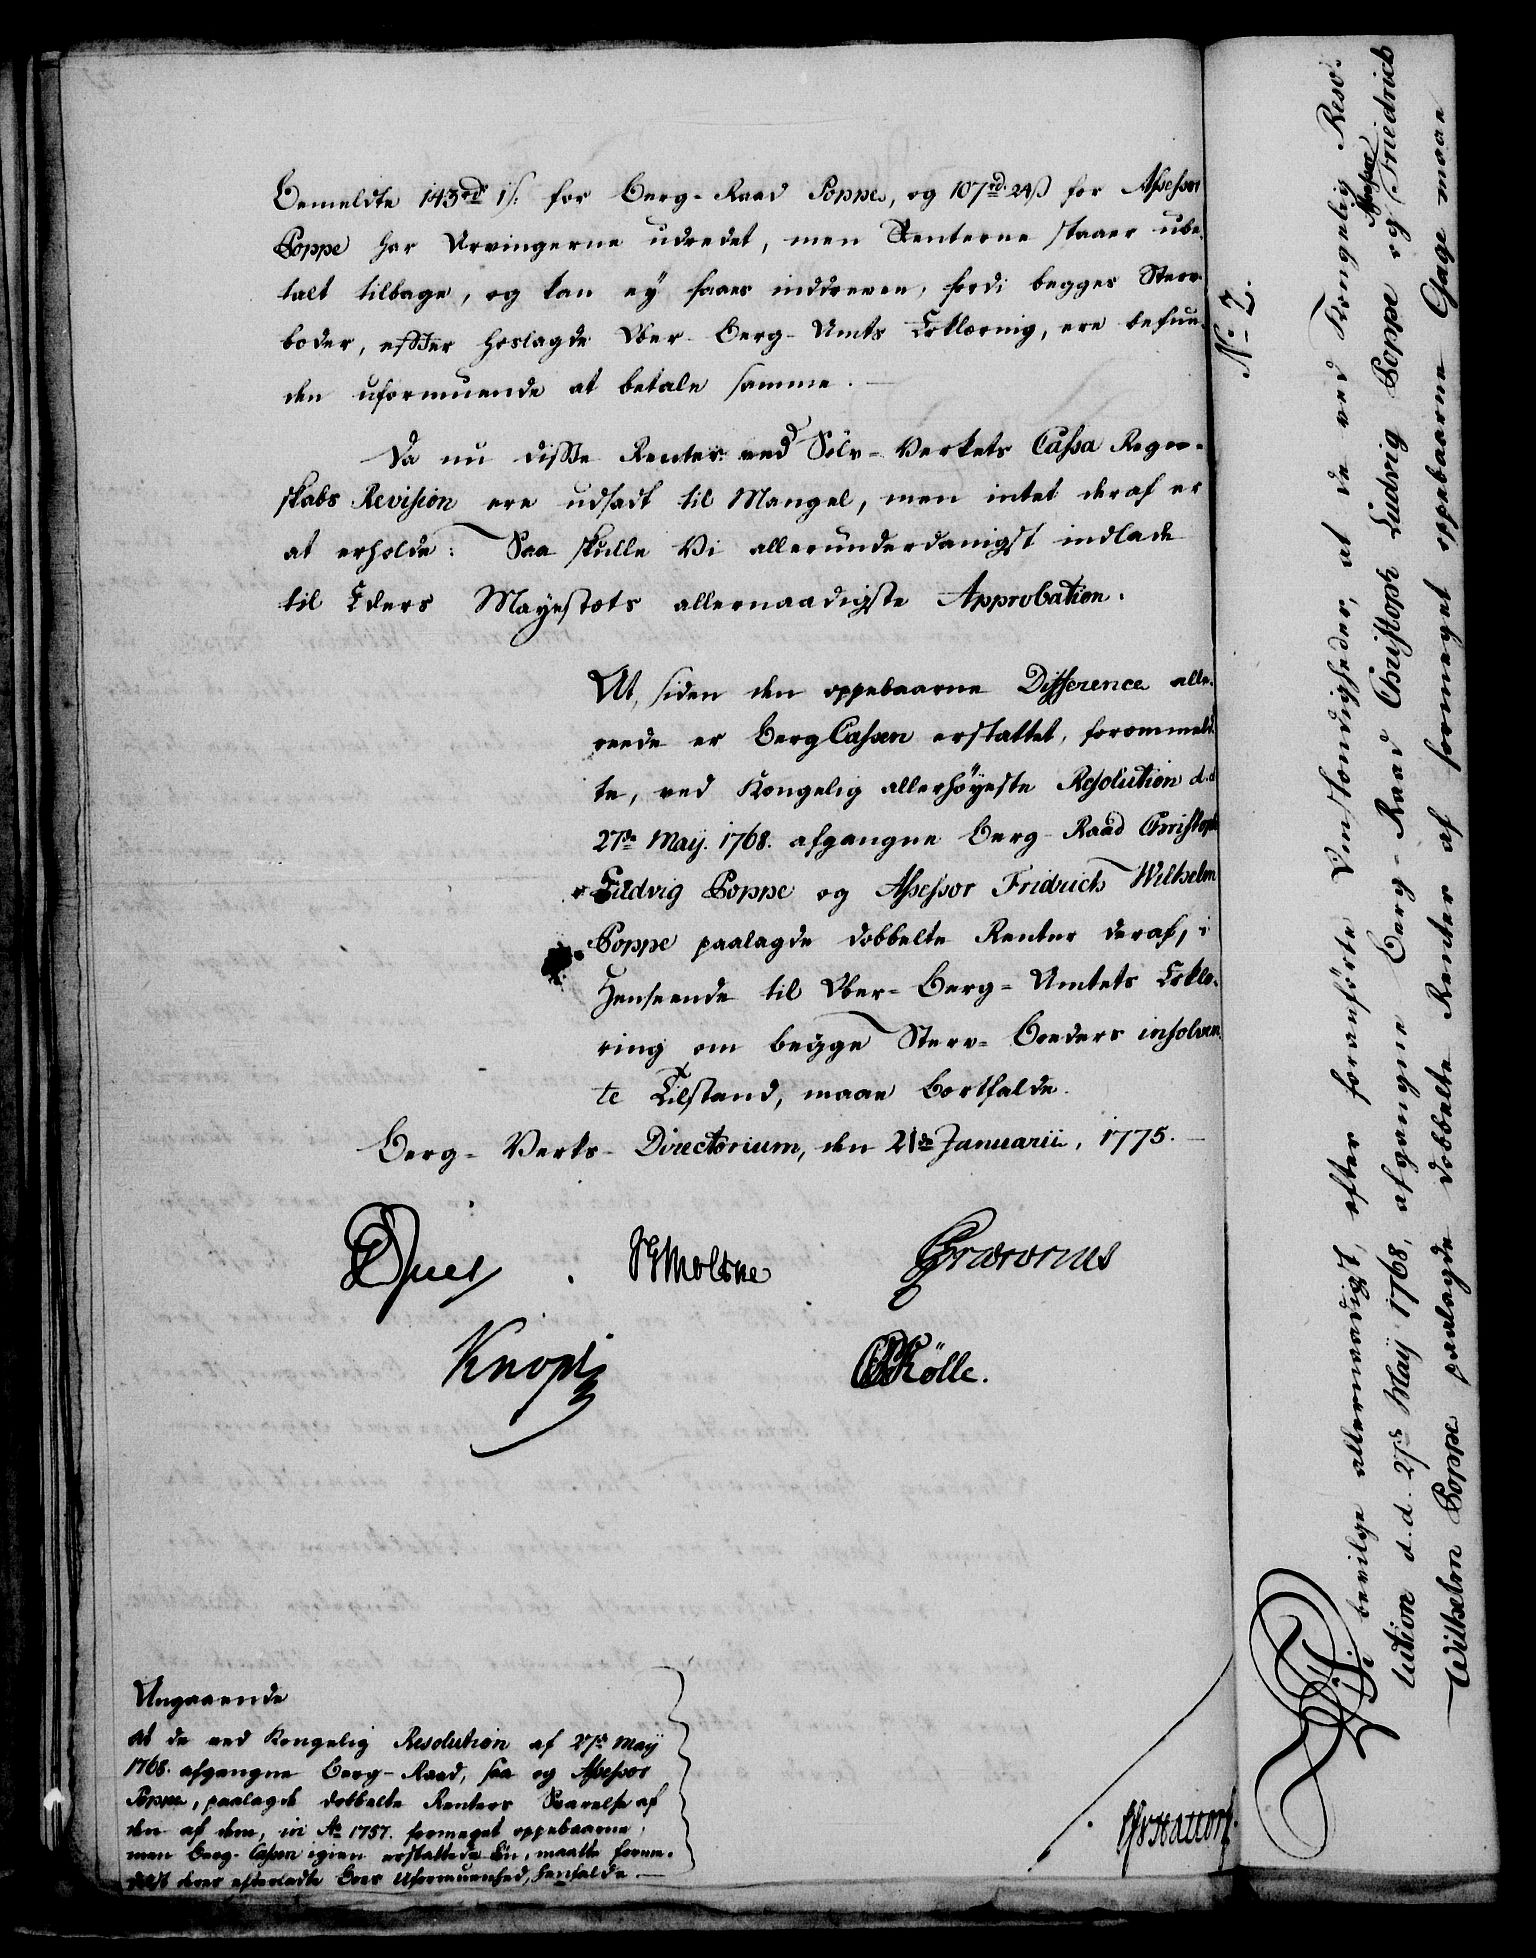 Bemeldte 143 rdr 1 s: for Berg-Raad Poppe, og 107 rd. 24 s for Assessor
Poppe har Arvingerne udredet, men Renterne staaer ube-
talt tilbage, og kan ey faaes inddreven, fordi begges Sterv-
boder, efter hoslagde Ober-Berg-Amts Erklæring, ere befun-
den uformuende at betale samme.
Da nu disse Renter ved Sölv-Verkets Cassa Regn-
skabs Revision ere udsadt til Mangel, men intet deraf er
at erholde: Saa skulle Vi allerunderdanigst indlade
til Eders Mayestæts allernaadigste Approbation.
At, siden den oppebaarne Difference alle-
reede er Berg Cassen erstattet, forommeld-
te, ved Kongelig allerhöyeste Resolution d.d.
27de May. 1768. afgangne Berg-Raad Christoph
Ludvig Poppe og Assessor Fridrich Wilhelm
Poppe paalagde dobbelte Renter deraf, i
Henseende til Ober-Berg-Amtets Erklæ-
ring om begge Sterv-Boeders insolven-
te Tilstand, maae bortfalde.
Berg-Verks-Directorium, den 21de Januarii, 1775.
Moltke
Knoph
Kölle.
Angaaende
at de ved Kongelig Resolution af 27de May
1768. afgangne Berg-Raad, saa og Assessor
Poppe, paalagde dobbelte Renters Svarelse af
den af dem, in Ao 1757. formeget oppebaarne,
men Berg-Cassen igien erstattede Gage, maatte forme-
delst deres efterladte Boes Uformuenhed, henfalde
No 2.
Vi bevilge allernaadigst, efter foranförte Omstændigheder, at de ved Kongelig Reso-
lution d.d. 27de May 1768, afgangne Berg-Raad Christoph Ludvig Poppe og Assessor Friedrich
Wilhelm Poppe paalagde dobbelte Renter af formeget oppebaarne Gage maae